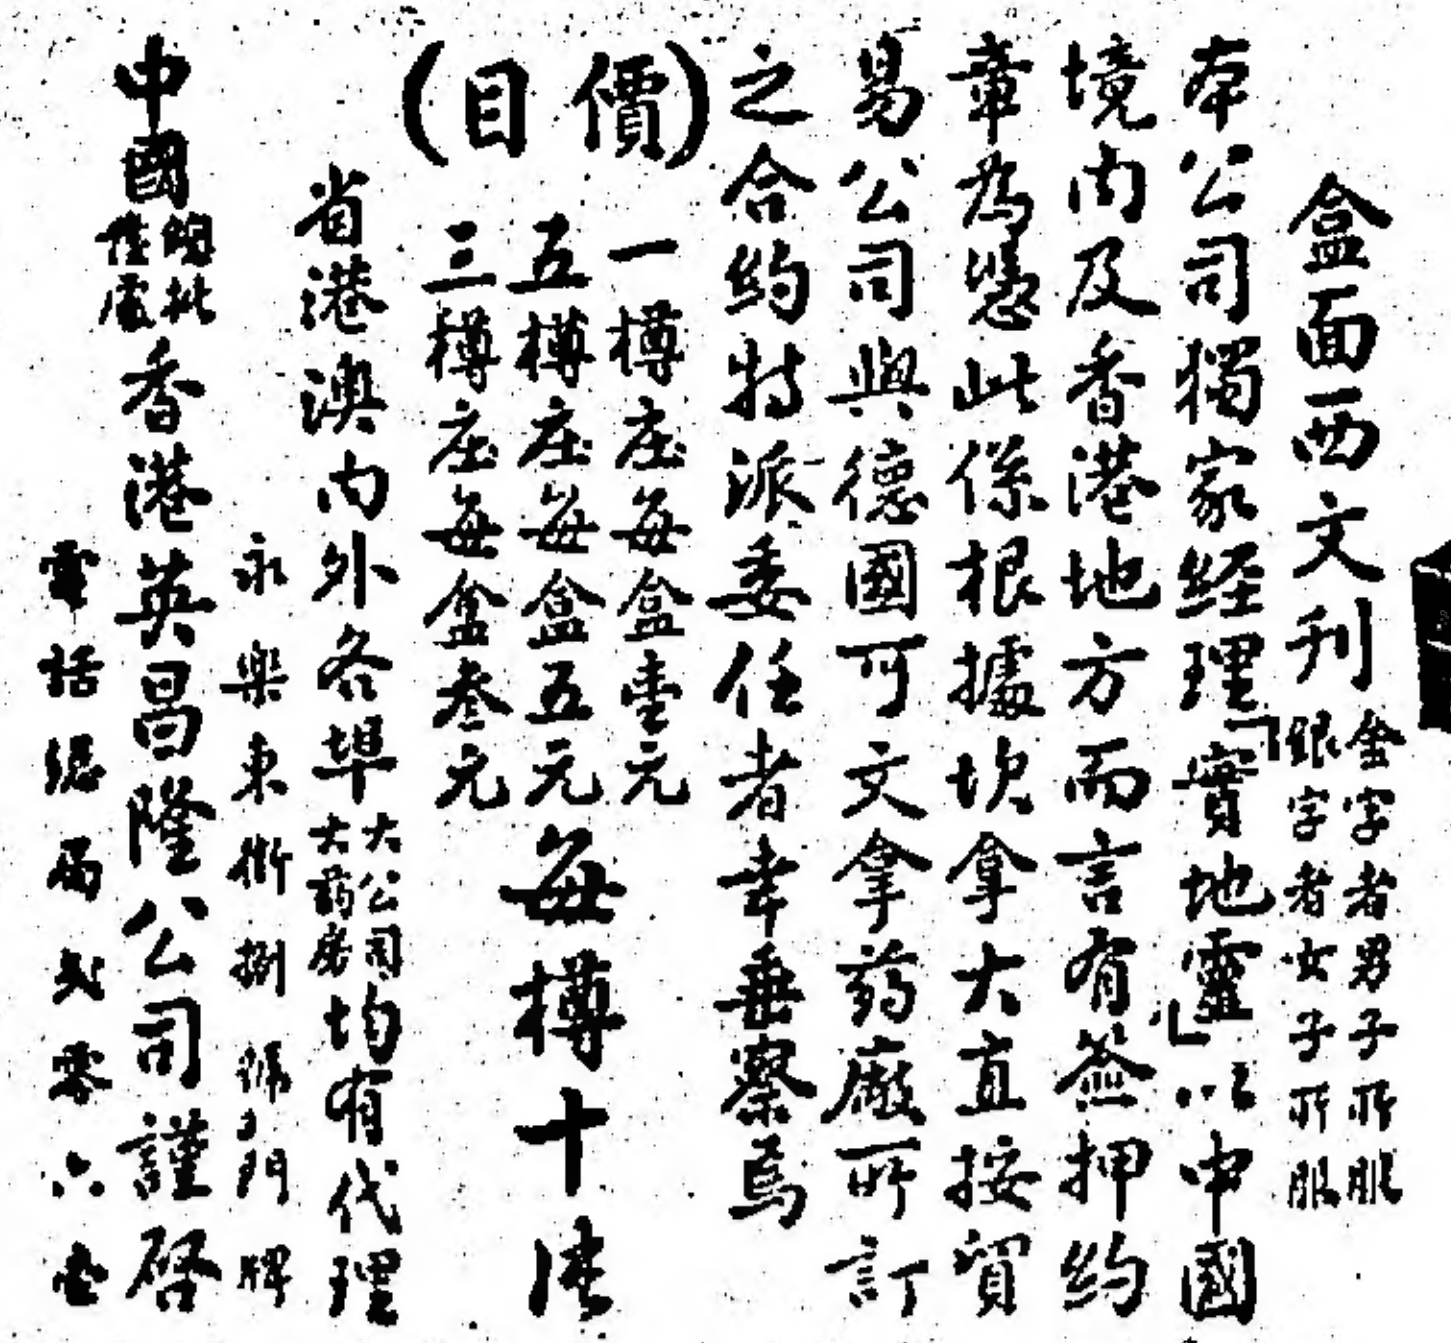 盒面西文刋金字者男子所服
銀字者女子所服
本公司獨家経理「實地靈」以中國
境内及香港地方而言有簽押約
章為憑此係根據坎拿大直接貿
易公司與德國可文拿葯廠所訂
之合約特派委任者幸垂察焉
(價目)
一樽庄每盒壹元
五樽庄每盒五元
三樽庄每盒叁元
每樽十
省港澳内外各埠大公司大葯房均有代理
永樂東街捌號門牌
中國總批發處香港英昌隆公司謹啓
電話總局弍零六壹